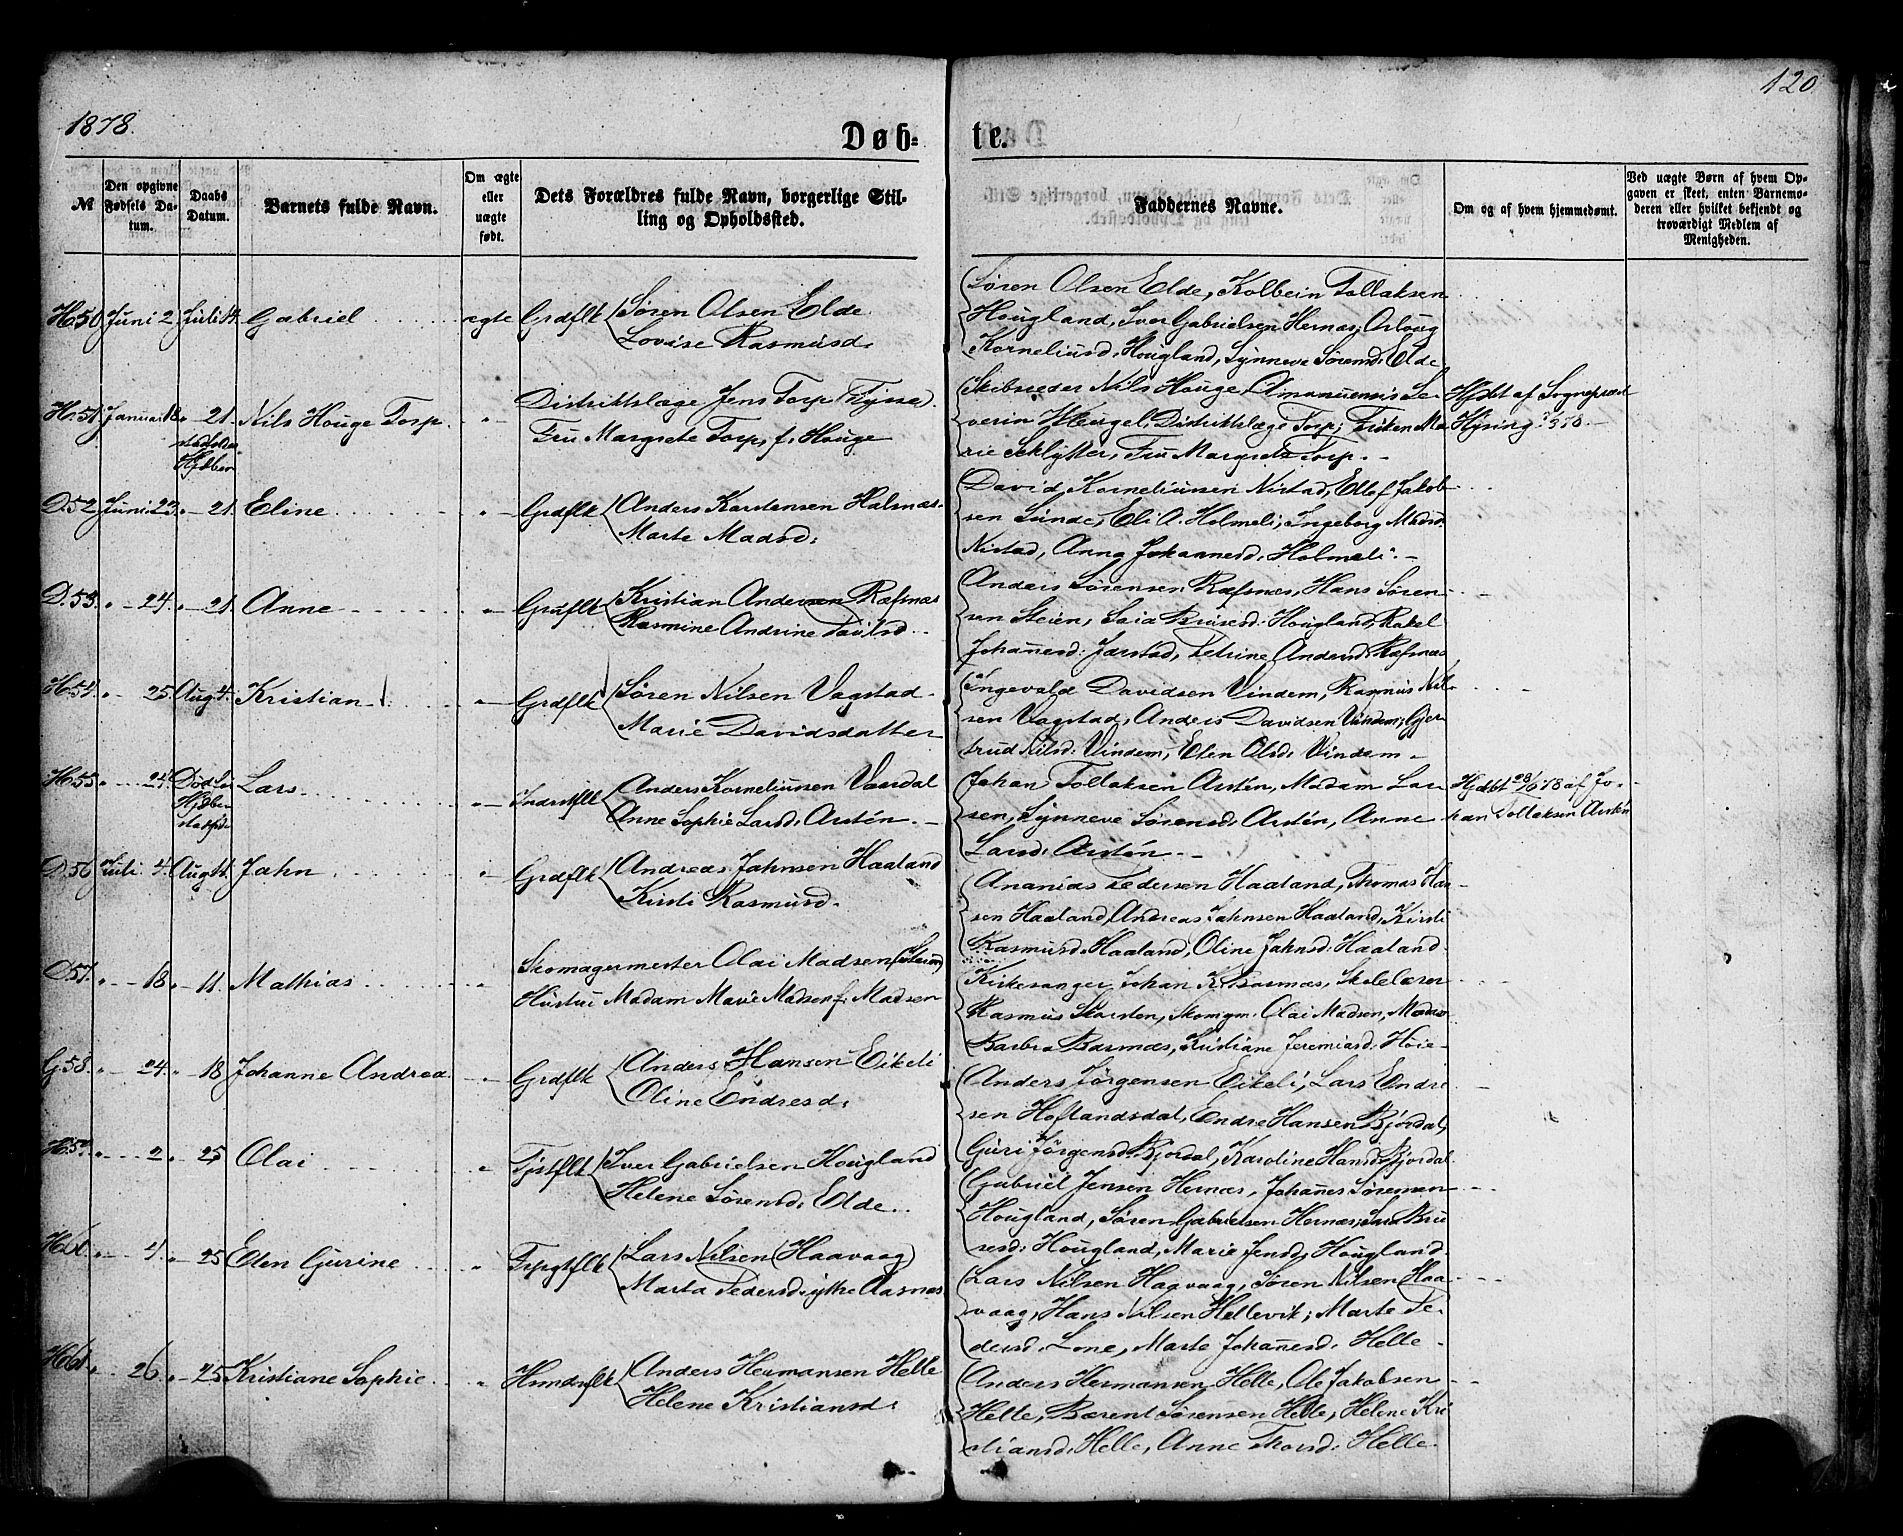 1878.
120
Døbte.
№
Den opgivne Fødsels Datum.
Daabs Datum.
Barnets fulde Navn.
Om ægte eller uægte født.
Dets Forældres fulde Navn, borgerlige Stilling og Opholdssted.
Faddernes Navne.
Om og af hvem hjemmedømt.
Ved uægte Børn af hvem Opgaven er skeet, enten Barnemoderen eller hvilket bekjendt og troværdigt Medlem af Menigheden.
H.50 Juni 2. Juli 14. Gabriel ægte Grdflk Søren Olsen Elde
Lovise Rasmusd.
Søren Olsen Elde, Kolbein Tollaksen
Hougland, Iver Gabrielsen Hernæs, Aslaug
Korneliusd. Hougland, Synneve Sørensd. Elde
H.51. Januar 18. " 21. Nils Houge Torp. " Distriktslæge Jens Torp
Fru Margrete Torp, f. Houge
Skibsreder Nils Houge, Amanuensis Se-
verin Heugel, Distriktslæge Torp, Frøken Ma-
rie Schlytter, Fru Margrete Torp.
Hjdbt af Sognepræst
Hysing
D.52 Juni 23. " 21. Eline " Grdflk Anders Karstensen Halsnæs
Marte Madsd.
David Korneliussen Nistad, Ellef Jakob-
sen Sunde, Eli A. Holmeli, Ingeborg Madsd.
Nistad, Anna Johannesd. Holmeli.
D.53. " 24. " 21. Anne " Grdflk Kristian Andersen Ræfsnæs
Rasmine Andrine Paulsd.
Anders Sørensen Ræfsnæs, Hans Søren-
sen Steien, Sara Brusesd. Hougland, Rakel
Johannesd. Jarstad, Petrine Andersd. Ræfsnæs
H.54. " 25. Aug. 4. Kristian " Grdflk Søren Nilsen Vagstad
Marie Davidsdatter
Ingevald Davidsen Vindem, Rasmus Nil-
sen Vagstad, Anders Davidsen Vindem, Gjer-
trud Nilsd. Vindem, Elen Olsd. Vindem
H.55. " 24. Lars " Indrstflk Anders Korneliussen Vaardal
Anne Sophie Larsd. Arstén.
Johan Tollaksen Arstén, Madam Lar-
sen, Synneve Sørensd. Arstén, Anne
Larsd. Arstén
Hjdbt 28/6 78 af Jo-
han Tollaksen Arstén
D.56 Juli 4. Aug. 11. Jahn " Grdflk Andreas Jahnsen Haaland
Kirsti Rasmusd.
Ananias Pedersen Haaland, Thomas Han-
sen Haaland, Andreas Jahnsen Haaland, Kirsti
Rasmusd. Haaland, Oline Jahnsd. Haaland
D.57. " 18. " 11. Mathias " Skomagermester Olai Madsen
Hustru Madam Marie Madsen f. Madsen
Kirkesanger Johan K. Barsnæs, Skolelærer
Rasmus Skarsten, Skomgm. Olai Madsen, Madam
Barbra Barsnæs, Kristiane Jeremiasd. Høie
G.58. " 24. " 18. Johanne Andrea " Grdflk Anders Hansen Eikeli
Oline Endresd.
Anders Jørgensen Eikeli, Lars Endre-
sen Hoflandsdal, Endre Hansen Bjordal,
Guri Jørgensd. Bjordal, Karoline Hansd. Bjordal
H.59. " 2. " 25 Olai " Iver Gabrielsen Hougland
Helene Sørensd. Elde.
Gabriel Jensen Hernæs, Johannes Sørensen
Hougland, Søren Gabrielsen Hernæs, Sara Bru-
sesd. Hougland, Marie Jensd. Hougland
H.60. " 4. " 25 Elen Gurine " Lars Nilsen (Haavaag)
Marta Pedersd. Aasnæs
Lars Nilsen Haavaag, Søren Nilsen Haa-
vaag, Hans Nilsen Hellevik, Marte Pe-
dersd. Lone, Marte Johannesd. Helle
H.61. " 26. " 25 Kristiane Sophie " Husmdsflk Anders Hermansen Helle
Helene Kristiansd.
Anders Hermansen Helle, Ole Jakobsen
Helle, Bærent Sørensen Helle, Helene Kri-
stiansd. Helle, Anne Thorsd. Helle.